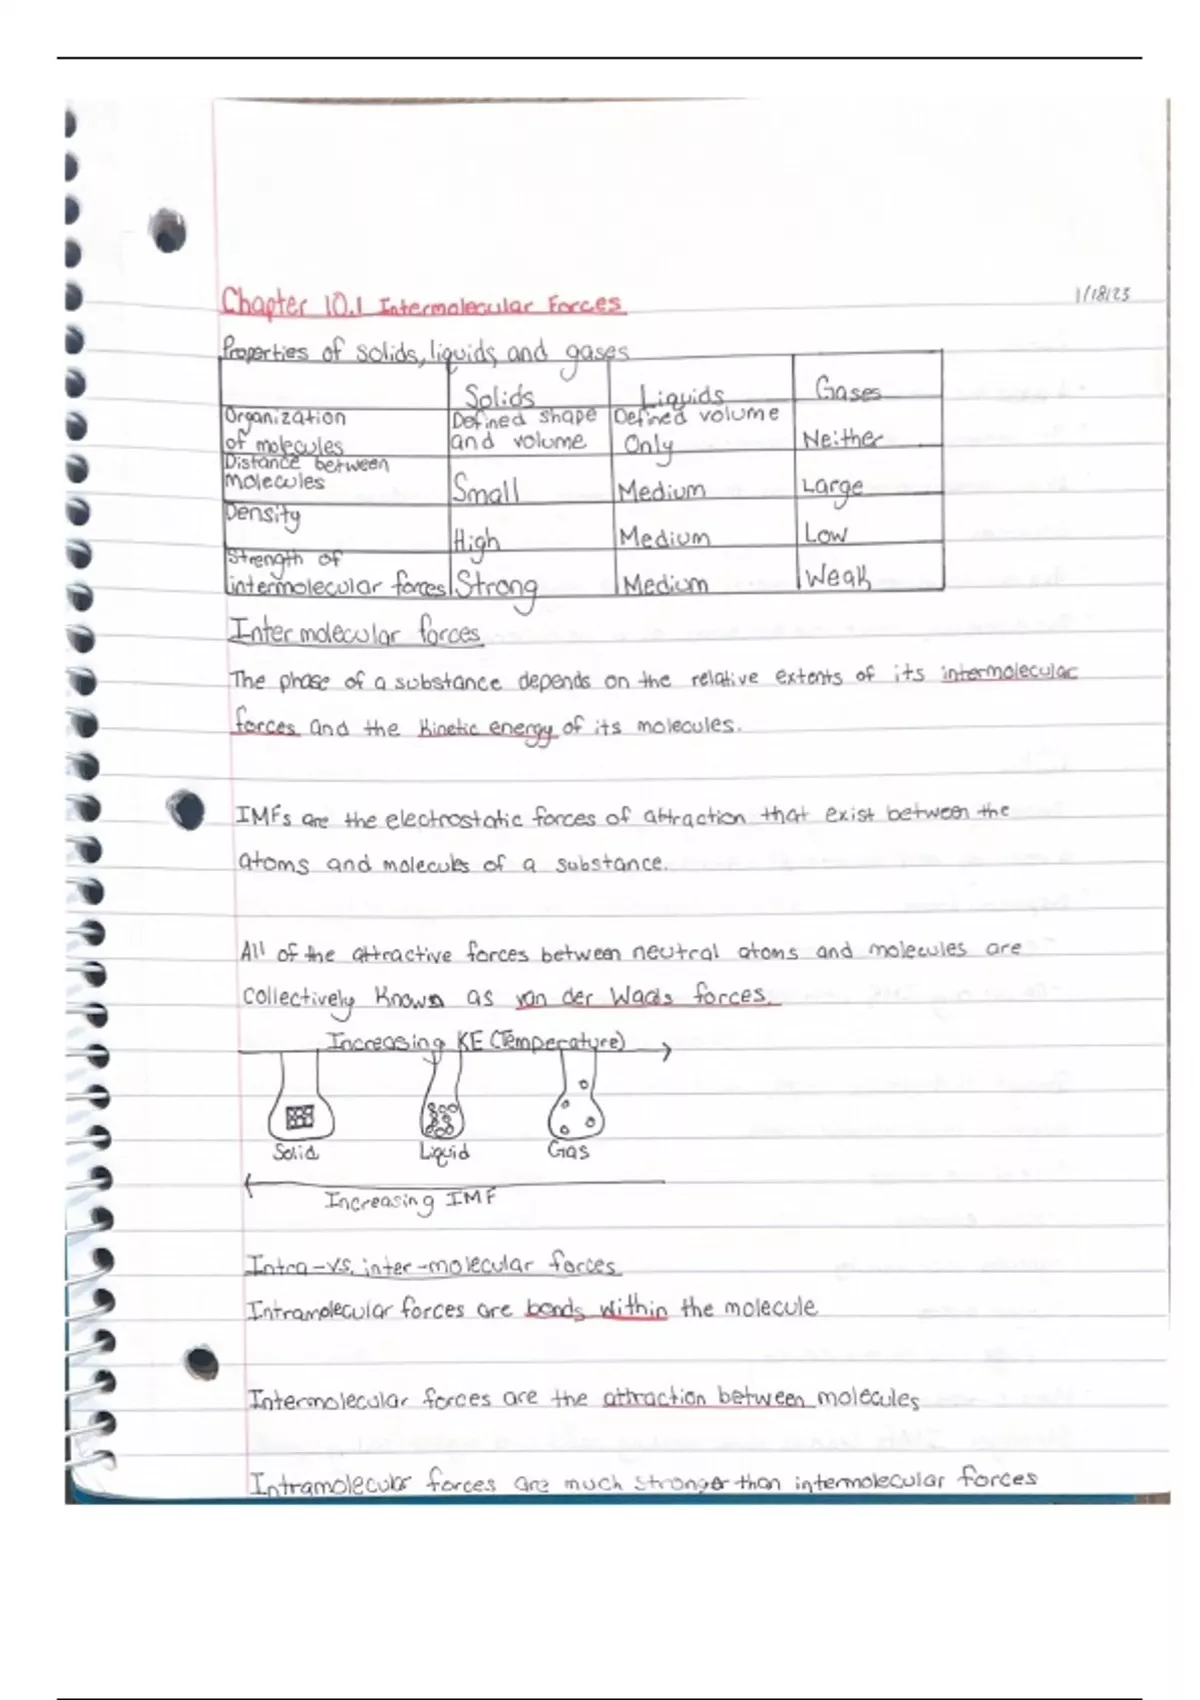 1/18/23
Chapter 10.1 Intermolecular Forces
Properties of solids, liquids and gases
Solids Liquids Gases
Organization of molecules Defined shape and volume Defined volume Only Neither
Distance between molecules Small Medium Large
Density High Medium Low
Strength of intermolecular forces Strong Medium Weak
Intermolecular forces
The phase of a substance depends on the relative extents of its intermolecular
forces and the kinetic energy of its molecules.
IMFs are the electrostatic forces of attraction that exist between the
atoms and molecules of a substance.
All of the attractive forces between neutral atoms and molecules are
collectively known as van der Waals forces.
Increasing KE (Temperature)
Solid Liquid Gas
Increasing IMF
Intra-vs. inter-molecular forces
Intramolecular forces are bonds within the molecule
Intermolecular forces are the attraction between molecules
Intramolecular forces are much stronger than intermolecular forces